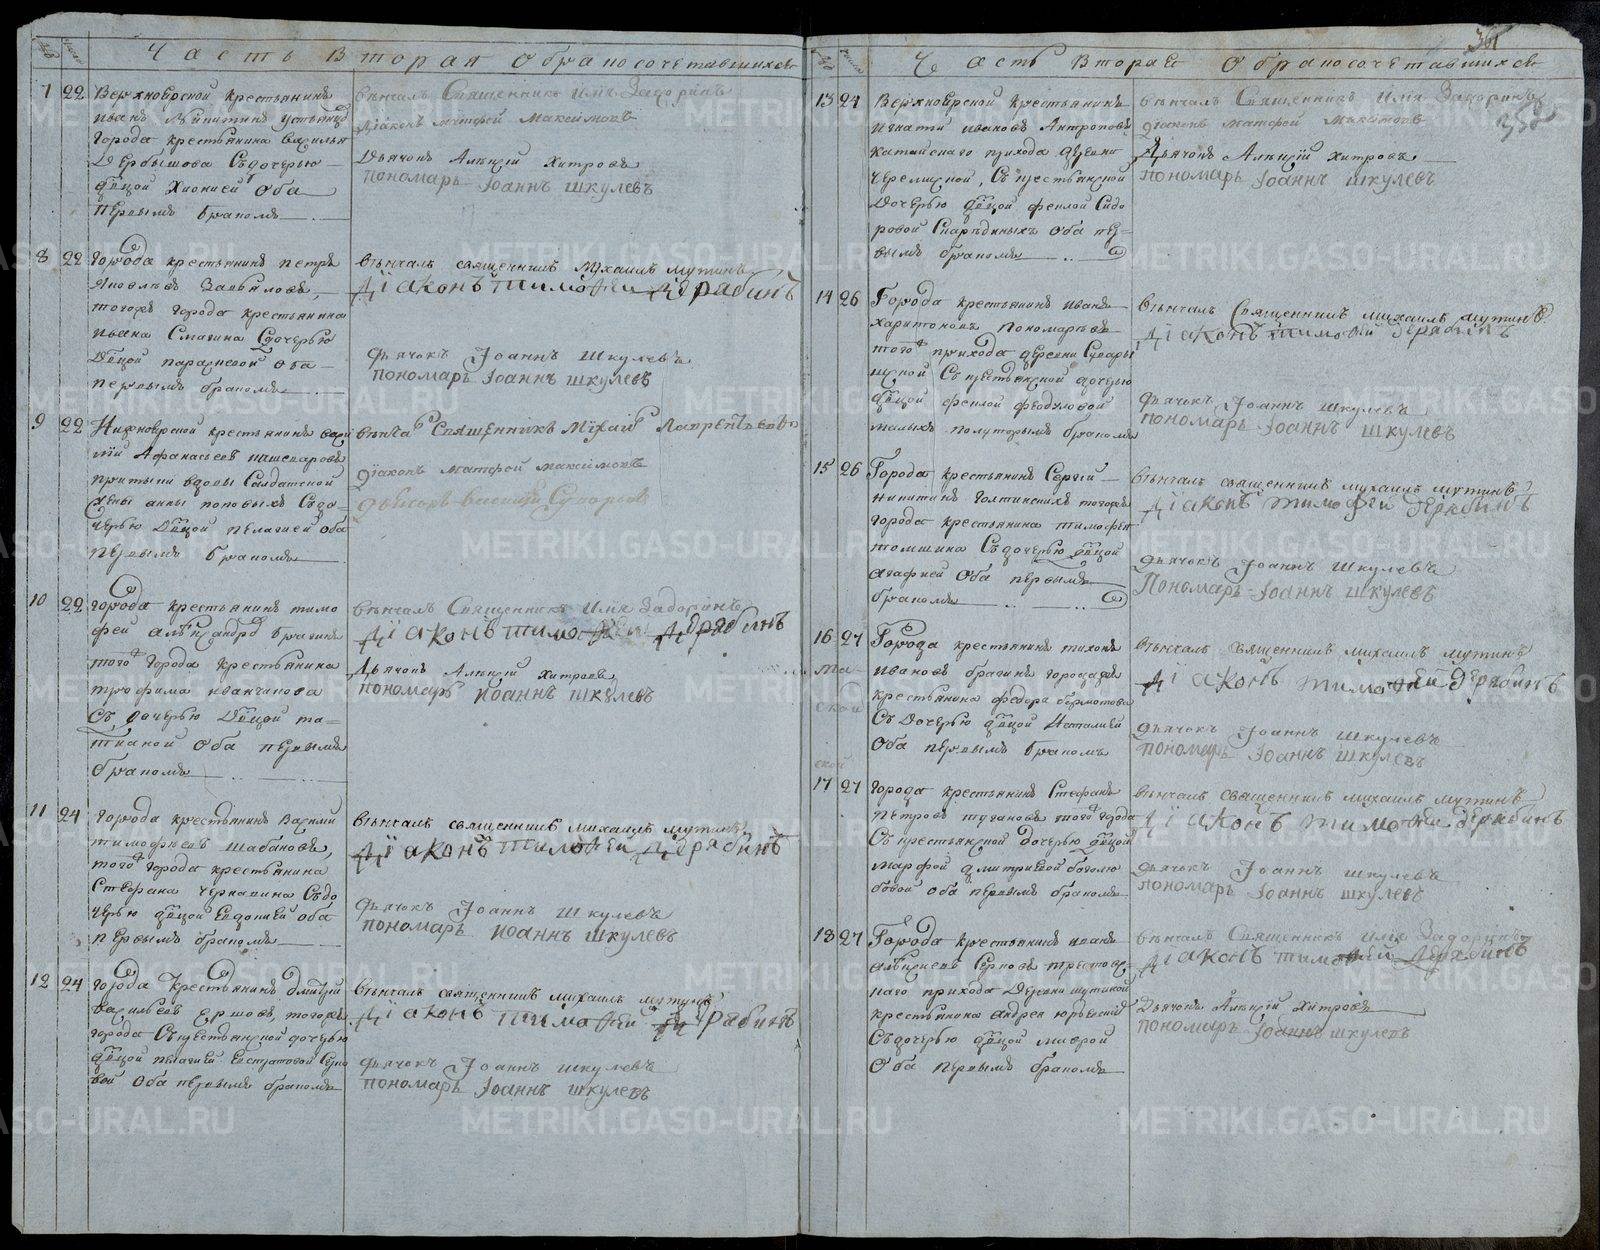 Часть Вторая О бракосочетавшихся
7 22 Верхноярской крестьянинъ
Иванъ
города крестьянина Василья
Дербышова Съ дочерью
дѣвцой Хионией Оба
первымъ бракомъ
вѣнчалъ Священникъ Илiя Задоринъ
Дiаконъ Матфей Максимовъ
Дьячокъ Алѣксѣй Хитровъ
пономарь Iоаннъ шкулевъ
8 22 Города крестьянинъ петръ
Яковлевъ Завьяловъ,
тогожъ города крестьянина
Ивана Смагина Сдочерью
дѣвцой параскевой Оба
первымъ бракомъ
вѣнчалъ священникъ Михаилъ мутинъ
Дiаконъ тимофей Дерябинъ
дьячокъ Iоаннъ Шкулевъ
пономарь Iоаннъ шкулевъ
9 22 Нижноярской крестьянинъ
Афанасьевъ
вдовы Салдатской
жены анны поповыхъ Съдо
черью дѣвцой пелагией оба
первымъ бракомъ
вѣнчалъ Священникъ Михаилъ Лаврентьевъ
Дiаконъ матфей максимовъ
10 22 города крестьянинъ тимо
фей брагинъ
того города крестьянина
трофима иванчикова
Съ дочерью дѣвцой та
тианой Оба первымъ
бракомъ
вѣнчалъ Священникъ Илiя Задоринъ
Дiаконъ тимофей Дерябинъ
Дьячокъ Алѣксѣй Хитровъ
пономарь иоаннъ шкулевъ
11 24 города крестьянинъ Василий
тимофеевъ шабановъ,
того города крестьянина
Стефана черкашина Съдо
черью дѣвцой Евдокией оба
первымъ бракомъ
вѣнчалъ священникъ михаилъ мутинъ
Дiаконъ тимофей Дерябинъ
дьячокъ Iоаннъ Шкулевъ
пономарь иоаннъ шкулевъ
12 24 города Крестьянинъ дмитрий
васильевъ Ершовъ, тогожъ
города Съ крестьянской дочерью
дѣвцой пелагией
вой Оба первымъ бракомъ
вѣнчалъ священникъ михаилъ мутинъ
Дiаконъ тимофей Дерябинъ
дьячокъ Iоаннъ шкулевъ
пономарь Iоаннъ шкулевъ
361
Часть Вторая О бракосочетавшихся
13 24 Верхноярской крестьянинъ
Игнатий ивановъ Антроповъ
катайскаго прихода деревни
Черемисской, Съ крестьянской
Дочерью дѣвцой феклой Сидо
ровой Оба пер=
вымъ бракомъ
вѣнчалъ Священникъ Илiя Задоринъ
дiаконъ матфей максимовъ
Дьячокъ Алѣксѣй хитровъ
пономарь Iоаннъ шкулевъ
14 26 Города крестьянинъ иванъ
харитоновъ пономаревъ
того прихода деревни
Съ крестьянской дочерью
дѣвцой феклой феодуловой
бракомъ
вѣнчалъ Священникъ михаилъ мутинъ
Дiаконъ тимофей дерябинъ
дьячокъ Iоаннъ шкулевъ
пономарь Iоаннъ шкулевъ
15 26 Города крестьянинъ Сергий
никитинъ тогожъ
города крестьянина тимофея
томшина Съ дочерью дѣвцой
агафией Оба первымъ
бракомъ
вѣнчалъ священникъ михаилъ мутинъ
Дiаконъ тимофей дерябинъ
дьячокъ Iоаннъ Шкулевъ
Пономарь Iоаннъ шкулевъ
16 27 Города крестьянинъ тихонъ
ивановъ брагинъ
крестьянина федора
Съ дочерью дѣвцой Наталией
Оба первымъ бракомъ
вѣнчалъ священникъ михаилъ мутинъ
Дiаконъ тимофей дерябинъ
дьячокъ Iоаннъ шкулевъ
пономарь Iоаннъ шкулевъ
17 27 города крестьянинъ Стефанъ
петровъ того города
Съ крестьянской дочерью дѣвцой
марфой дмитриевой боголю
бовой оба первымъ бракомъ
вѣнчалъ священникъ михаилъ мутинъ
Дiаконъ тимофей дерябинъ
дьячокъ Iоаннъ шкулевъ
пономарь Iоаннъ шкулевъ
18 27 Города крестьянинъ иванъ
прихода деревни
крестьянина андрея
Съ дочерью дѣвцой маврой
Оба первымъ бракомъ
вѣнчалъ Священникъ Илiя Задоринъ
Дiаконъ тимофей Дерябинъ
Дьячокъ Алѣксѣй Хитровъ
пономарь Iоаннъ шкулевъ
METRIKI.GASO-URAL.RU